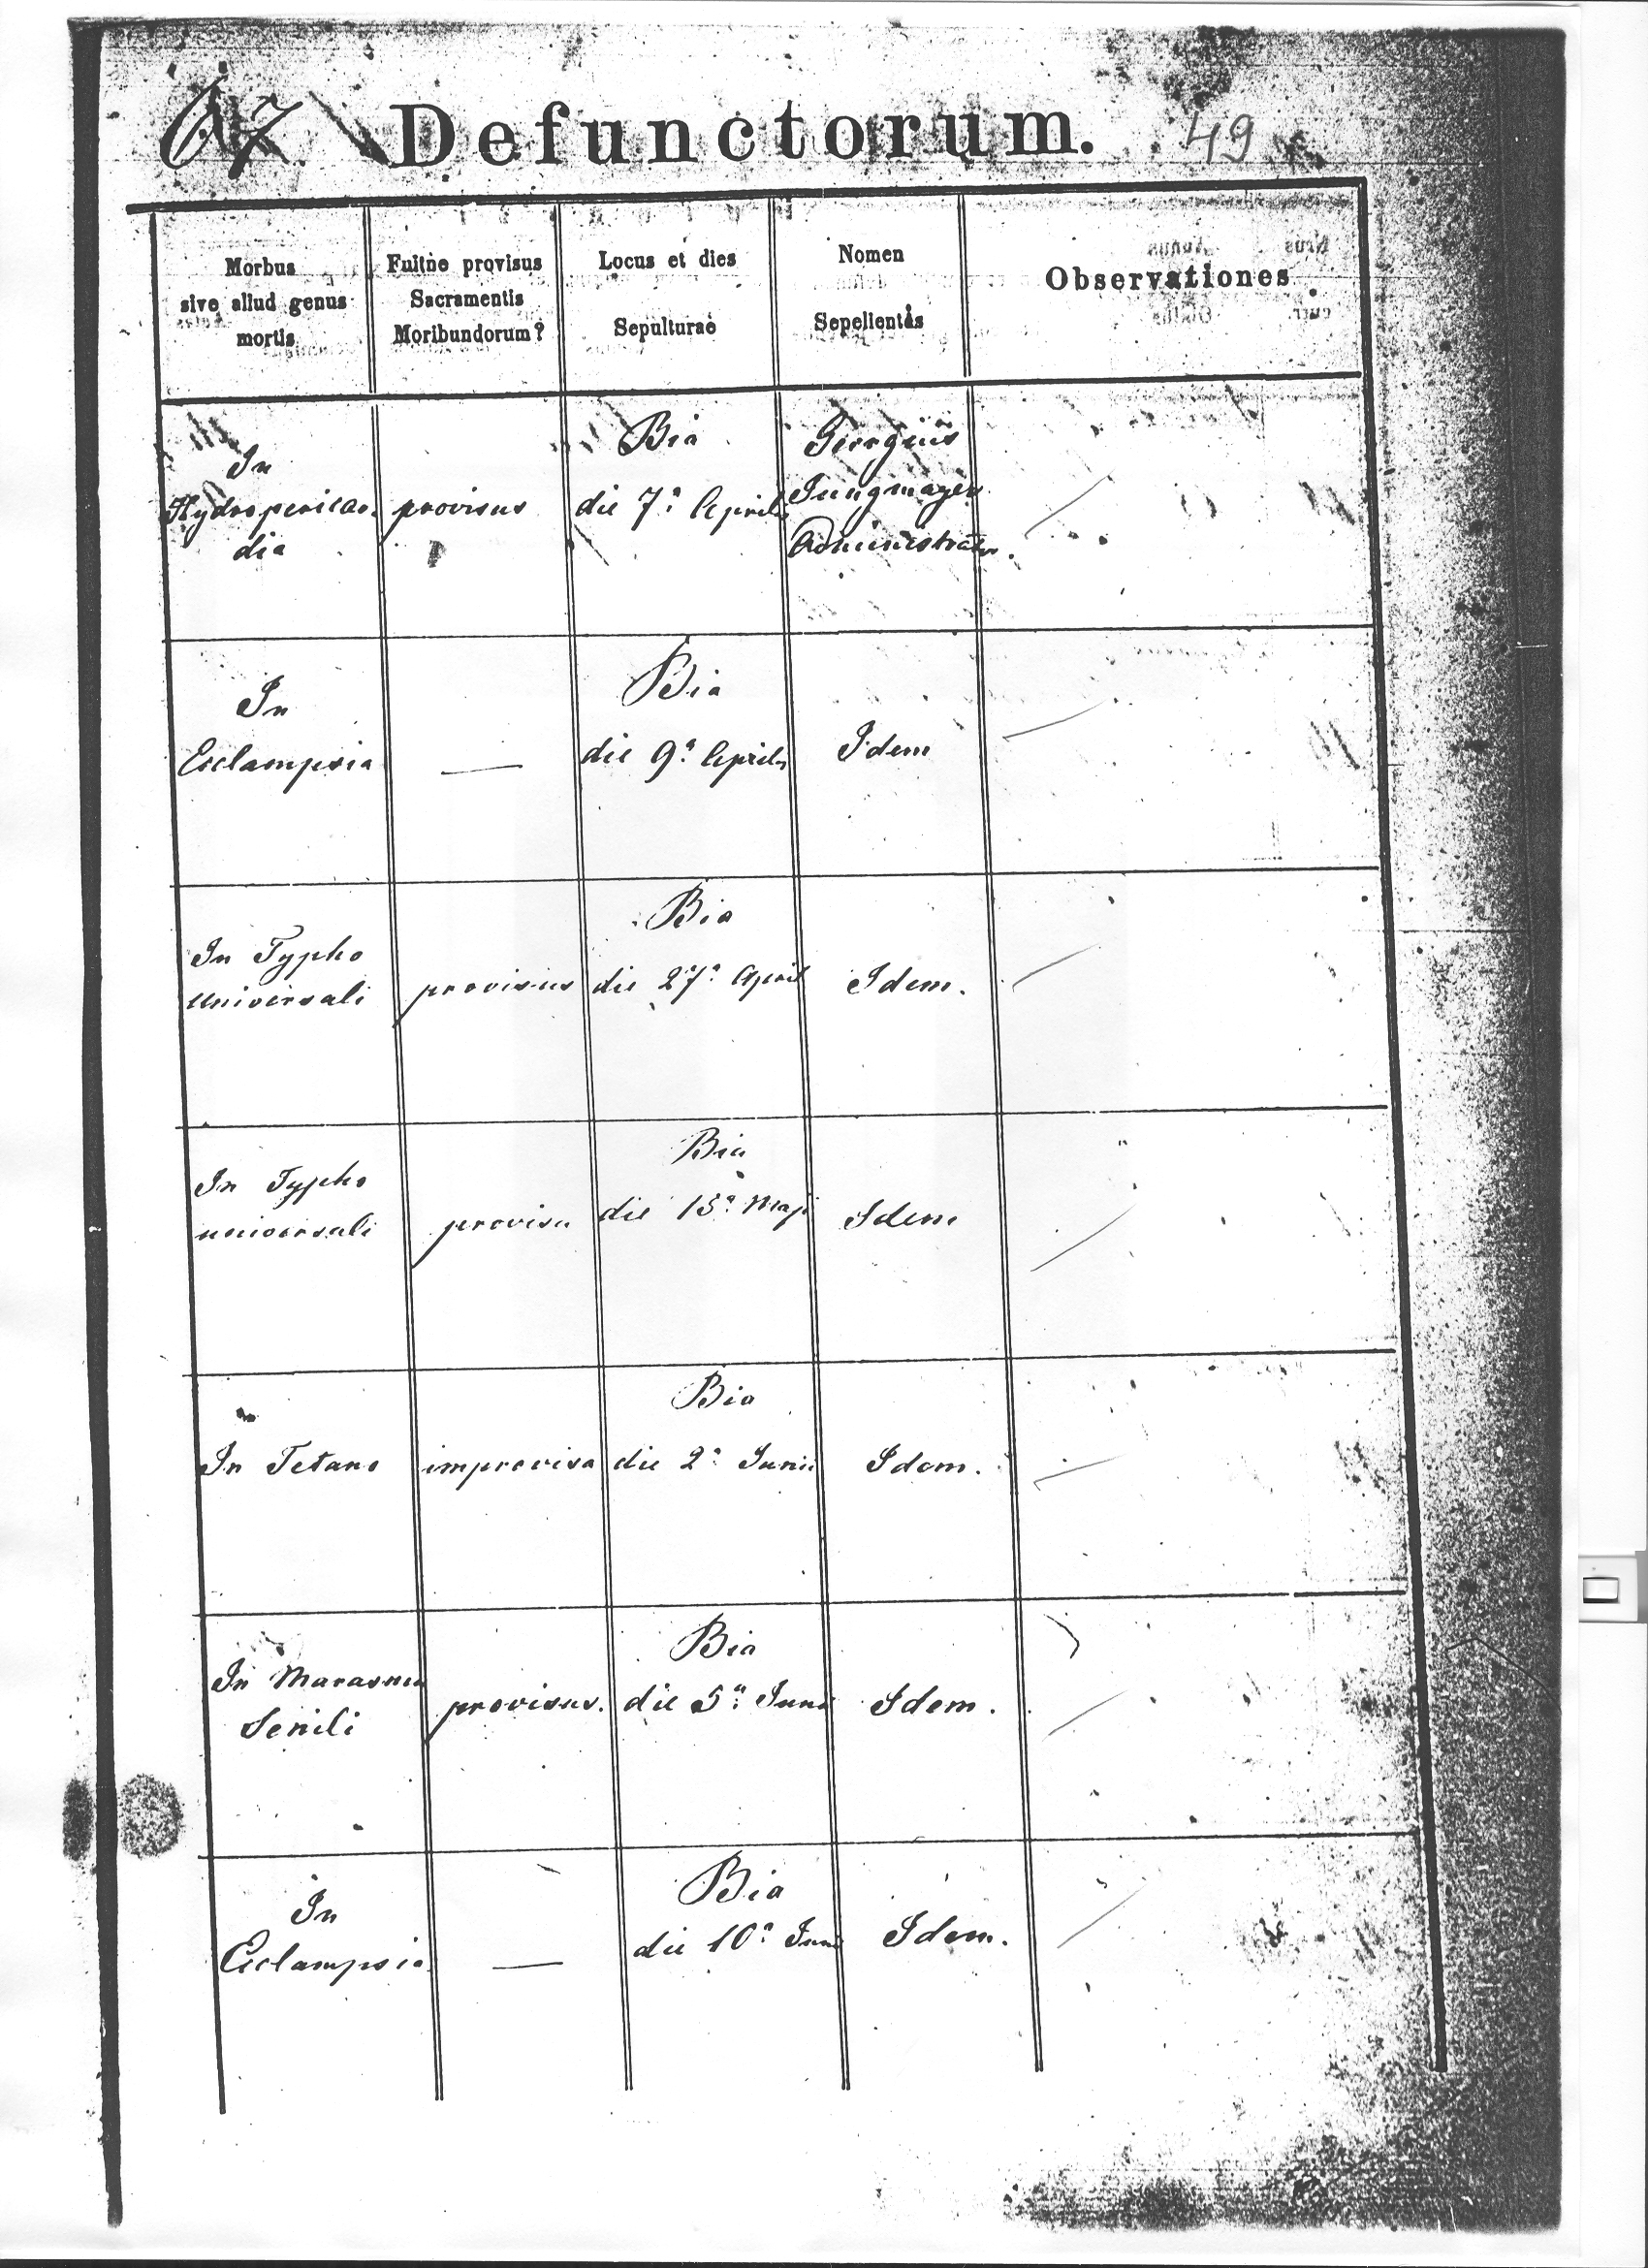 67 Defunctorum. 49
Morbus
sive aliud genus
mortis
Fuitne provisus
Sacramentis
Moribundorum?
Locus et dies
Sepulturae
Nomen
Sepelientis
Observationes
In
Hydropericar.
dia
provisus
Bia
die 7ª Aprilis
Georgius
Jungmayer
Administrator.
In
Eclampsia
—
Bia
die 9ª Aprilis
Idem
In Typho
universali
provisus
Bia
die 27ª April
Idem.
In Typho
universali
provisa
Bia
die 15ª Maji
Idem
In Tetano
improvisa
Bia
die 2ª Junii
Idem.
In Marasmu
Senili
provisus.
Bia
die 5ª Junii
Idem.
In
Eclampsia
—
Bia
die 10ª Juni
Idem.